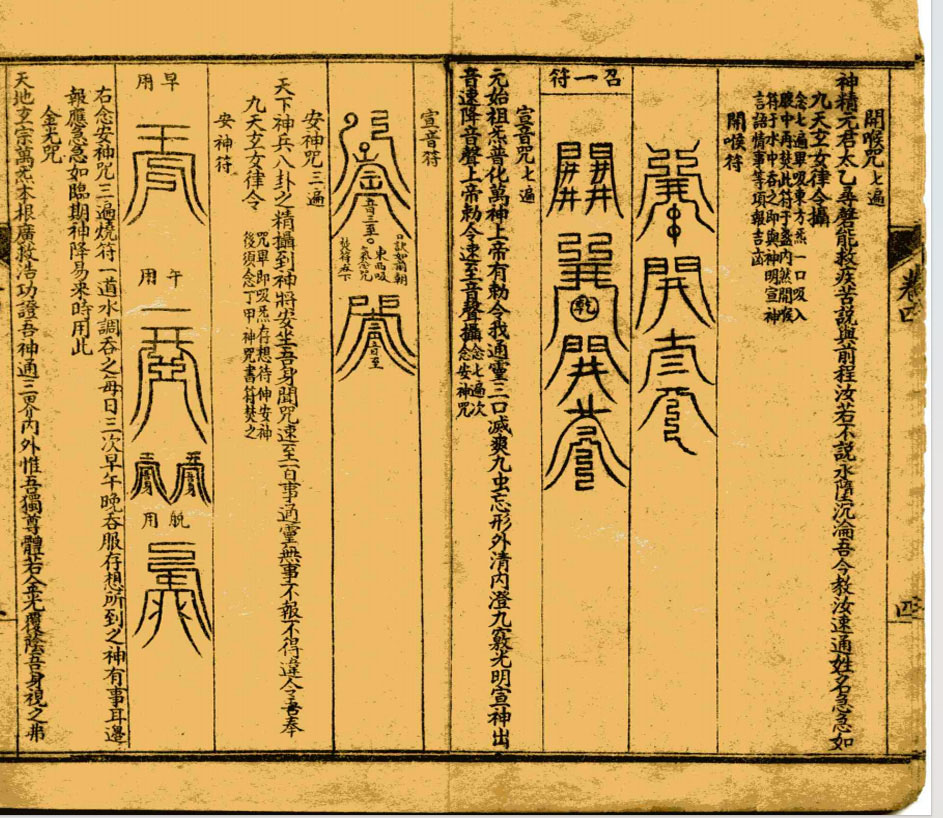 開喉咒七遍
神精元君太乙尋聲能救疾苦説與前程汝若不説永墮沉淪吾今教汝速通姓名急急如
九天玄女律令攝
念七遍畢吸東方炁一口吸入
腹中再焚此符于盏內然開喉
符于水中吞之即與神明宣神
言語情事等項報吉凶
開喉符
召一符
宣音咒七遍
元始祖炁普化萬神上帝有勅令我通靈三口滅爽九虫忘形外清內澄九竅光明宣神出
音速降音聲上帝勅令速至音聲攝
念七遍次
念安神咒
宣音符
音三至
口訣如前朝
東而吸
音至
安神咒三遍
天下神兵八卦之精攝到神將安坐吾身聞咒速至百事通靈無事不報不得違令吾奉
九天玄女律令
咒畢即吸炁存想待伸安神
後須念丁甲神咒書符焚之
安神符
早用
午用
晚用
右念安神咒三遍燒符一道水調吞之每日三次早午晚吞服存想所到之神有事耳邊
報應急急如臨期神降易來時用此
金光咒
天地玄宗萬炁本根廣救浩功證吾神通三界內外惟吾獨尊體若金光覆蔭吾身視之弗
卷四
四